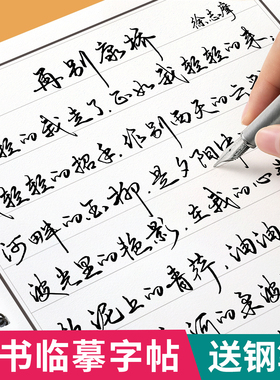 再别康桥
徐志摩
轻的我走了，正如我轻轻的来，
轻轻的招手，作别西天的云
河畔的金柳，是夕阳中
波光里的艳影，在我的心
泥上的青荇，油油
河的柔波
书临摹字帖
送钢